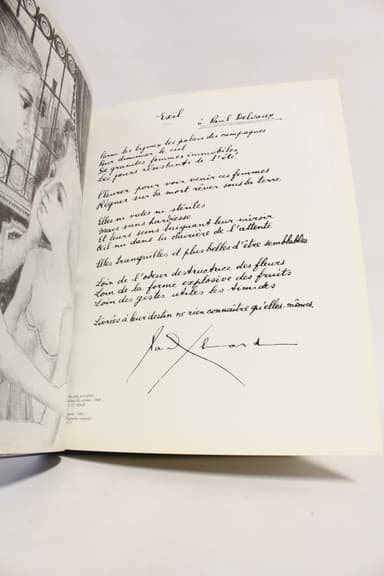 Exil
à Paul Delvaux
Parmi les bijoux les palais des campagnes
Pour diminuer le ciel
De grandes femmes immobiles
Les jours résistants de l'été
Pleurer pour voir venir ces femmes
Régner sur la mort rêver sous la terre
Elles ni vides ni stériles
Mais sans hardiesse
Et leurs seins baignant leur miroir
Œil nu dans la clairière de l'attente
Elles tranquilles et plus belles d'être semblables
Loin de l'odeur destructrice des fleurs
Loin de la forme explosive des fruits
Loin des gestes utiles les timides
Livrées à leur destin ne rien connaître qu'elles-mêmes.
Paul Eluard